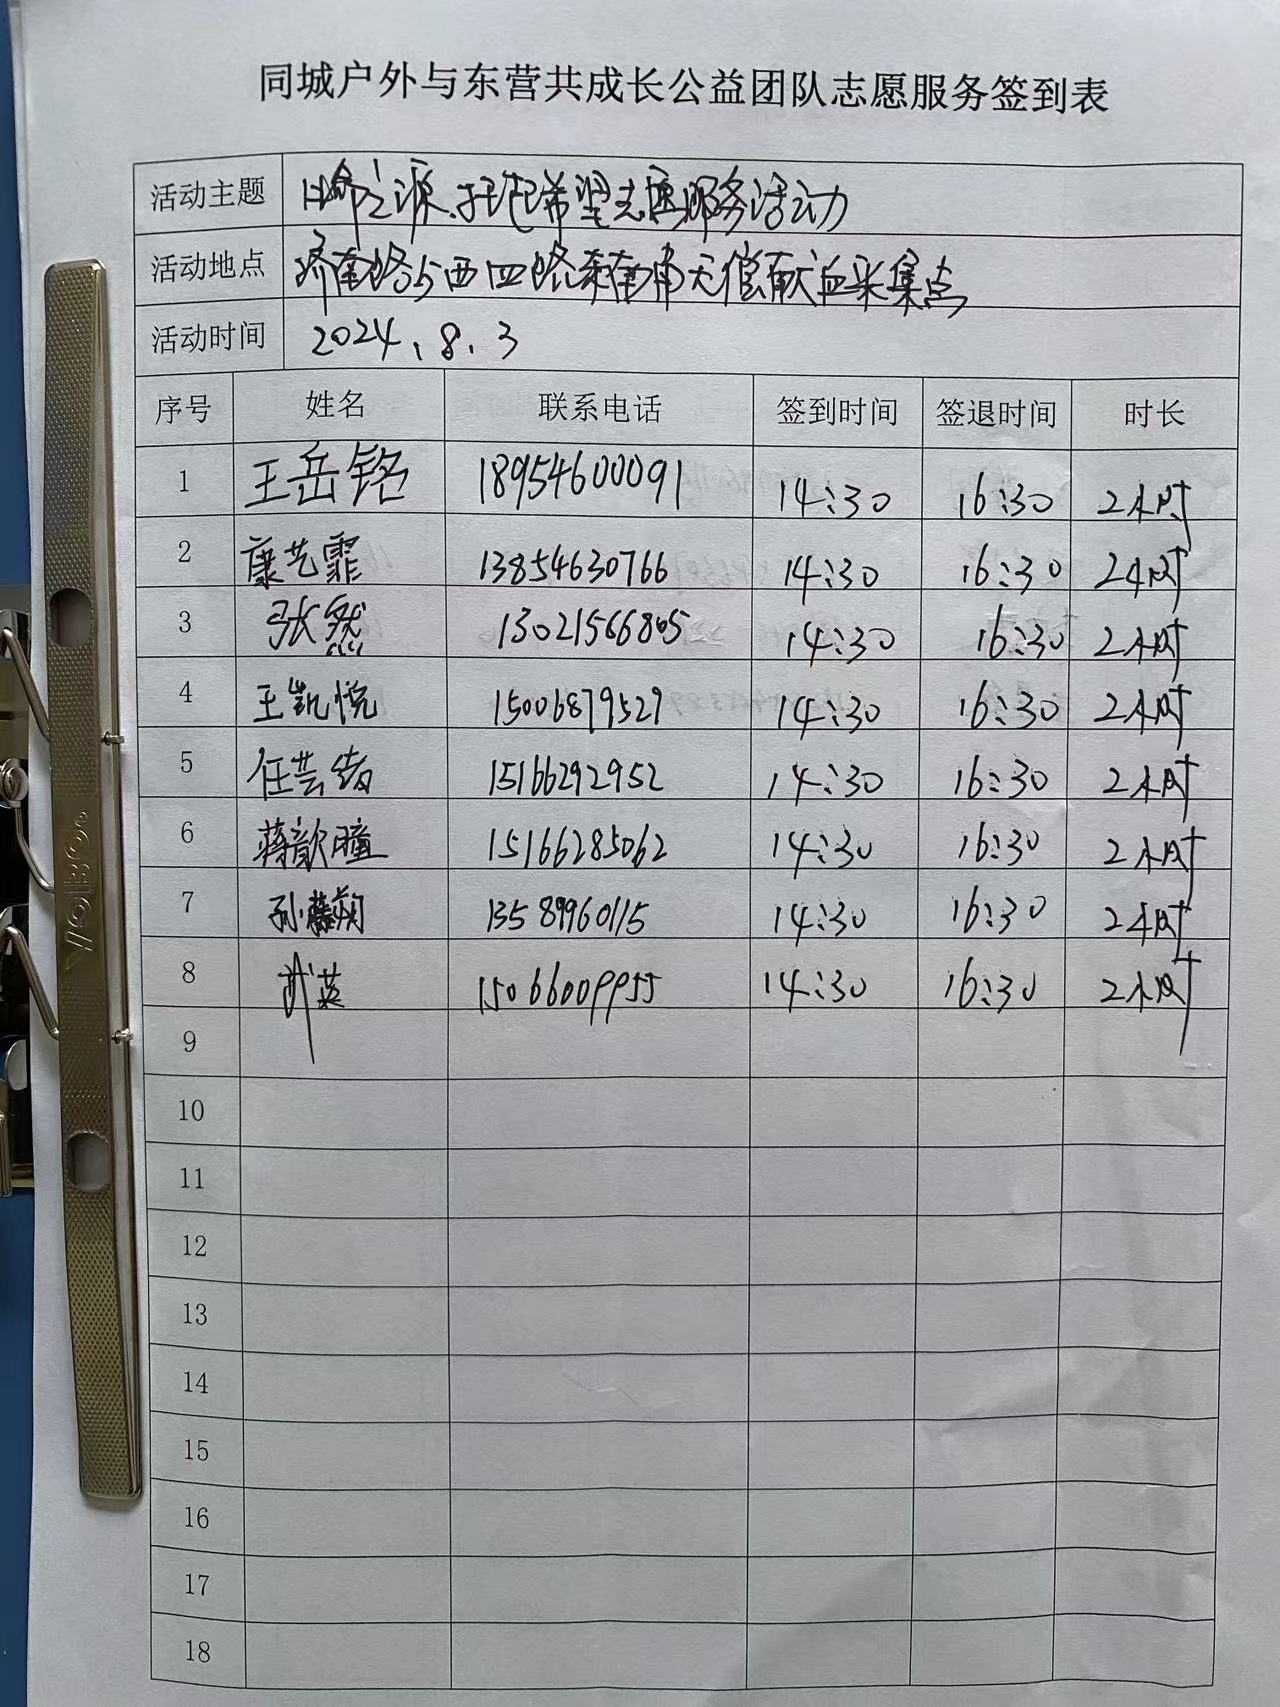 同城户外与东营共成长公益团队志愿服务签到表
活动主题 命之源.托起希望志愿服务活动
活动地点 济南路与西四路东南角无偿献血采集点
活动时间 2024.8.3
序号 姓名 联系电话 签到时间 签退时间 时长
1 王岳铭 18954600091 14:30 16:30 2小时
2 康艺霏 13854630766 14:30 16:30 2小时
3 张然 13021566805 14:30 16:30 2小时
4 王凯悦 15006879529 14:30 16:30 2小时
5 任芸 15166292952 14:30 16:30 2小时
6 蒋歆瞳 15166285062 14:30 16:30 2小时
7 孙 13589960115 14:30 16:30 2小时
8 武英 15066009955 14:30 16:30 2小时
9
10
11
12
13
14
15
16
17
18